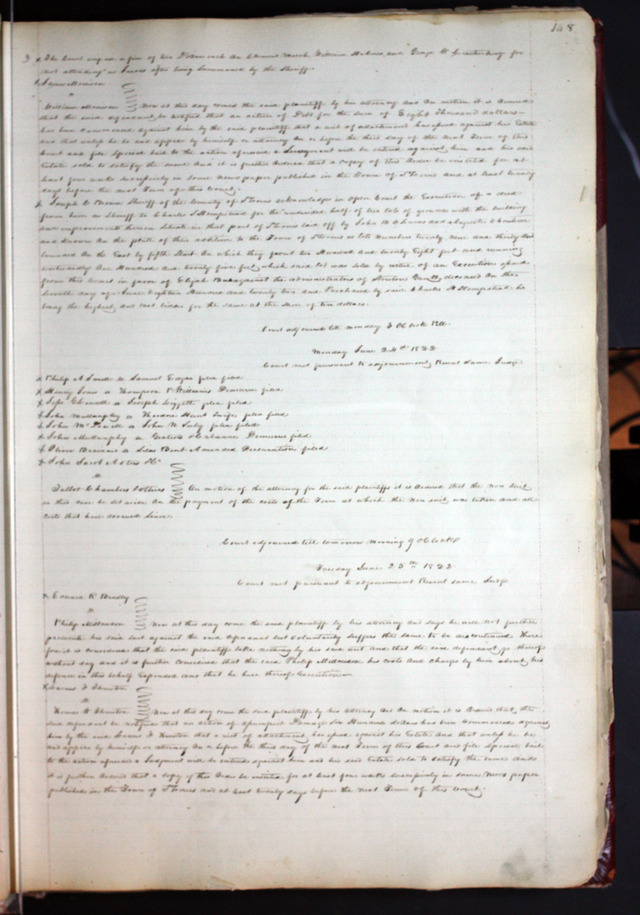 148
The Court imposed a fine of ten Dollars each on Edward and George H for
not attending as Jurors after being summoned by the Sheriff.
James Morrison
vs
William Morrison Now at this day comes the said plaintiff by his attorney and on motion it is ordered
that the said defendant be notified that an action of Debt for the sum of Eight Thousand dollars
has been commenced against him by the said plaintiff that a writ of attachment has issued against his Estate
and that unless he do not appear by himself or attorney on or before the third day of the next Term of this
Court and file Special bail to the action aforesaid a Judgment will be entered against him and his said
Estate sold to satisfy the same And it is further ordered that a copy of this Order be inserted for at
least four weeks successively in some Newspaper published in the Town of St Louis and at least twenty
days before the next Term of this Court.
Joseph C Brown Sheriff of the County of St Louis acknowledges in open Court the Execution of a deed
from him as Sheriff to Charles S Hempstead for the undivided half of two lots of ground with the buildings
and improvements thereon Situate in that part of St Louis laid off by John B
and known on the plat of this addition to the Town of St Louis as lots Number twenty nine and thirty
bounded on the East by fifth Street on which they front two Hundred and twenty Eight feet and running
westwardly One Hundred and twenty five feet, which said lot was sold by virtue of an Execution issued
from this Court in favor of Elijah against the administrators of deceased on the
day of June Eighteen Hundred and twenty two and Purchased by said Charles S Hempstead he
being the highest and last bidder for the same at the sum of ten dollars.
Court adjourned till monday 3 OClock PM.
Monday June 24th 1822
Court met pursuant to adjournment, Present same Judge
Philip A vs Samuel Edgar plea filed
Henry vs Thompson & Williams Demurrer filed
Jesse vs Joseph Liggett plea filed
John McLaughlin vs Theodore Hunt plea filed
John Mc vs John N plea filed
John McLaughlin vs Demurrer filed
Oliver vs Silas Bent Amended Declaration filed
John Jacob Astor &c
vs
Talbot Chambers & others On motion of the attorney for the said plaintiffs it is ordered that the non suit
in this case be set aside on the payment of the costs of the Term at which the non suit was taken and all
costs that have accrued since.
Court adjourned till tomorrow morning 9 OClock
Tuesday June 25th 1822
Court met pursuant to adjournment Present same Judge
Edward R Bradley
vs
Philip Now at this day came the said plaintiff by his attorney and says he will not further
prosecute his said suit against the said defendant but voluntarily suffers the same to be discontinued There
fore it is considered that the said plaintiff take nothing by his said suit and that the said defendant go thereof
without day and it is further considered that the said Philip his costs and charges by him about his
defence in this behalf expended and that he have thereof Execution
James F
vs
Thomas Now at this day came the said plaintiff by his attorney and on motion it is ordered that the
said defendant be notified that an action of Assumpsit Damages Six Hundred dollars has been commenced against
him by the said James F that a writ of attachment has issued against his Estate and that unless he be
not appear by himself or attorney on or before the third day of the next Term of this Court and file Special bail
to the action aforesaid a Judgment will be entered against him and his said Estate sold to satisfy the same And
it is further ordered that a copy of this Order be inserted for at least four weeks successively in some News paper
published in the Town of St Louis and at least twenty days before the next Term of this Court.